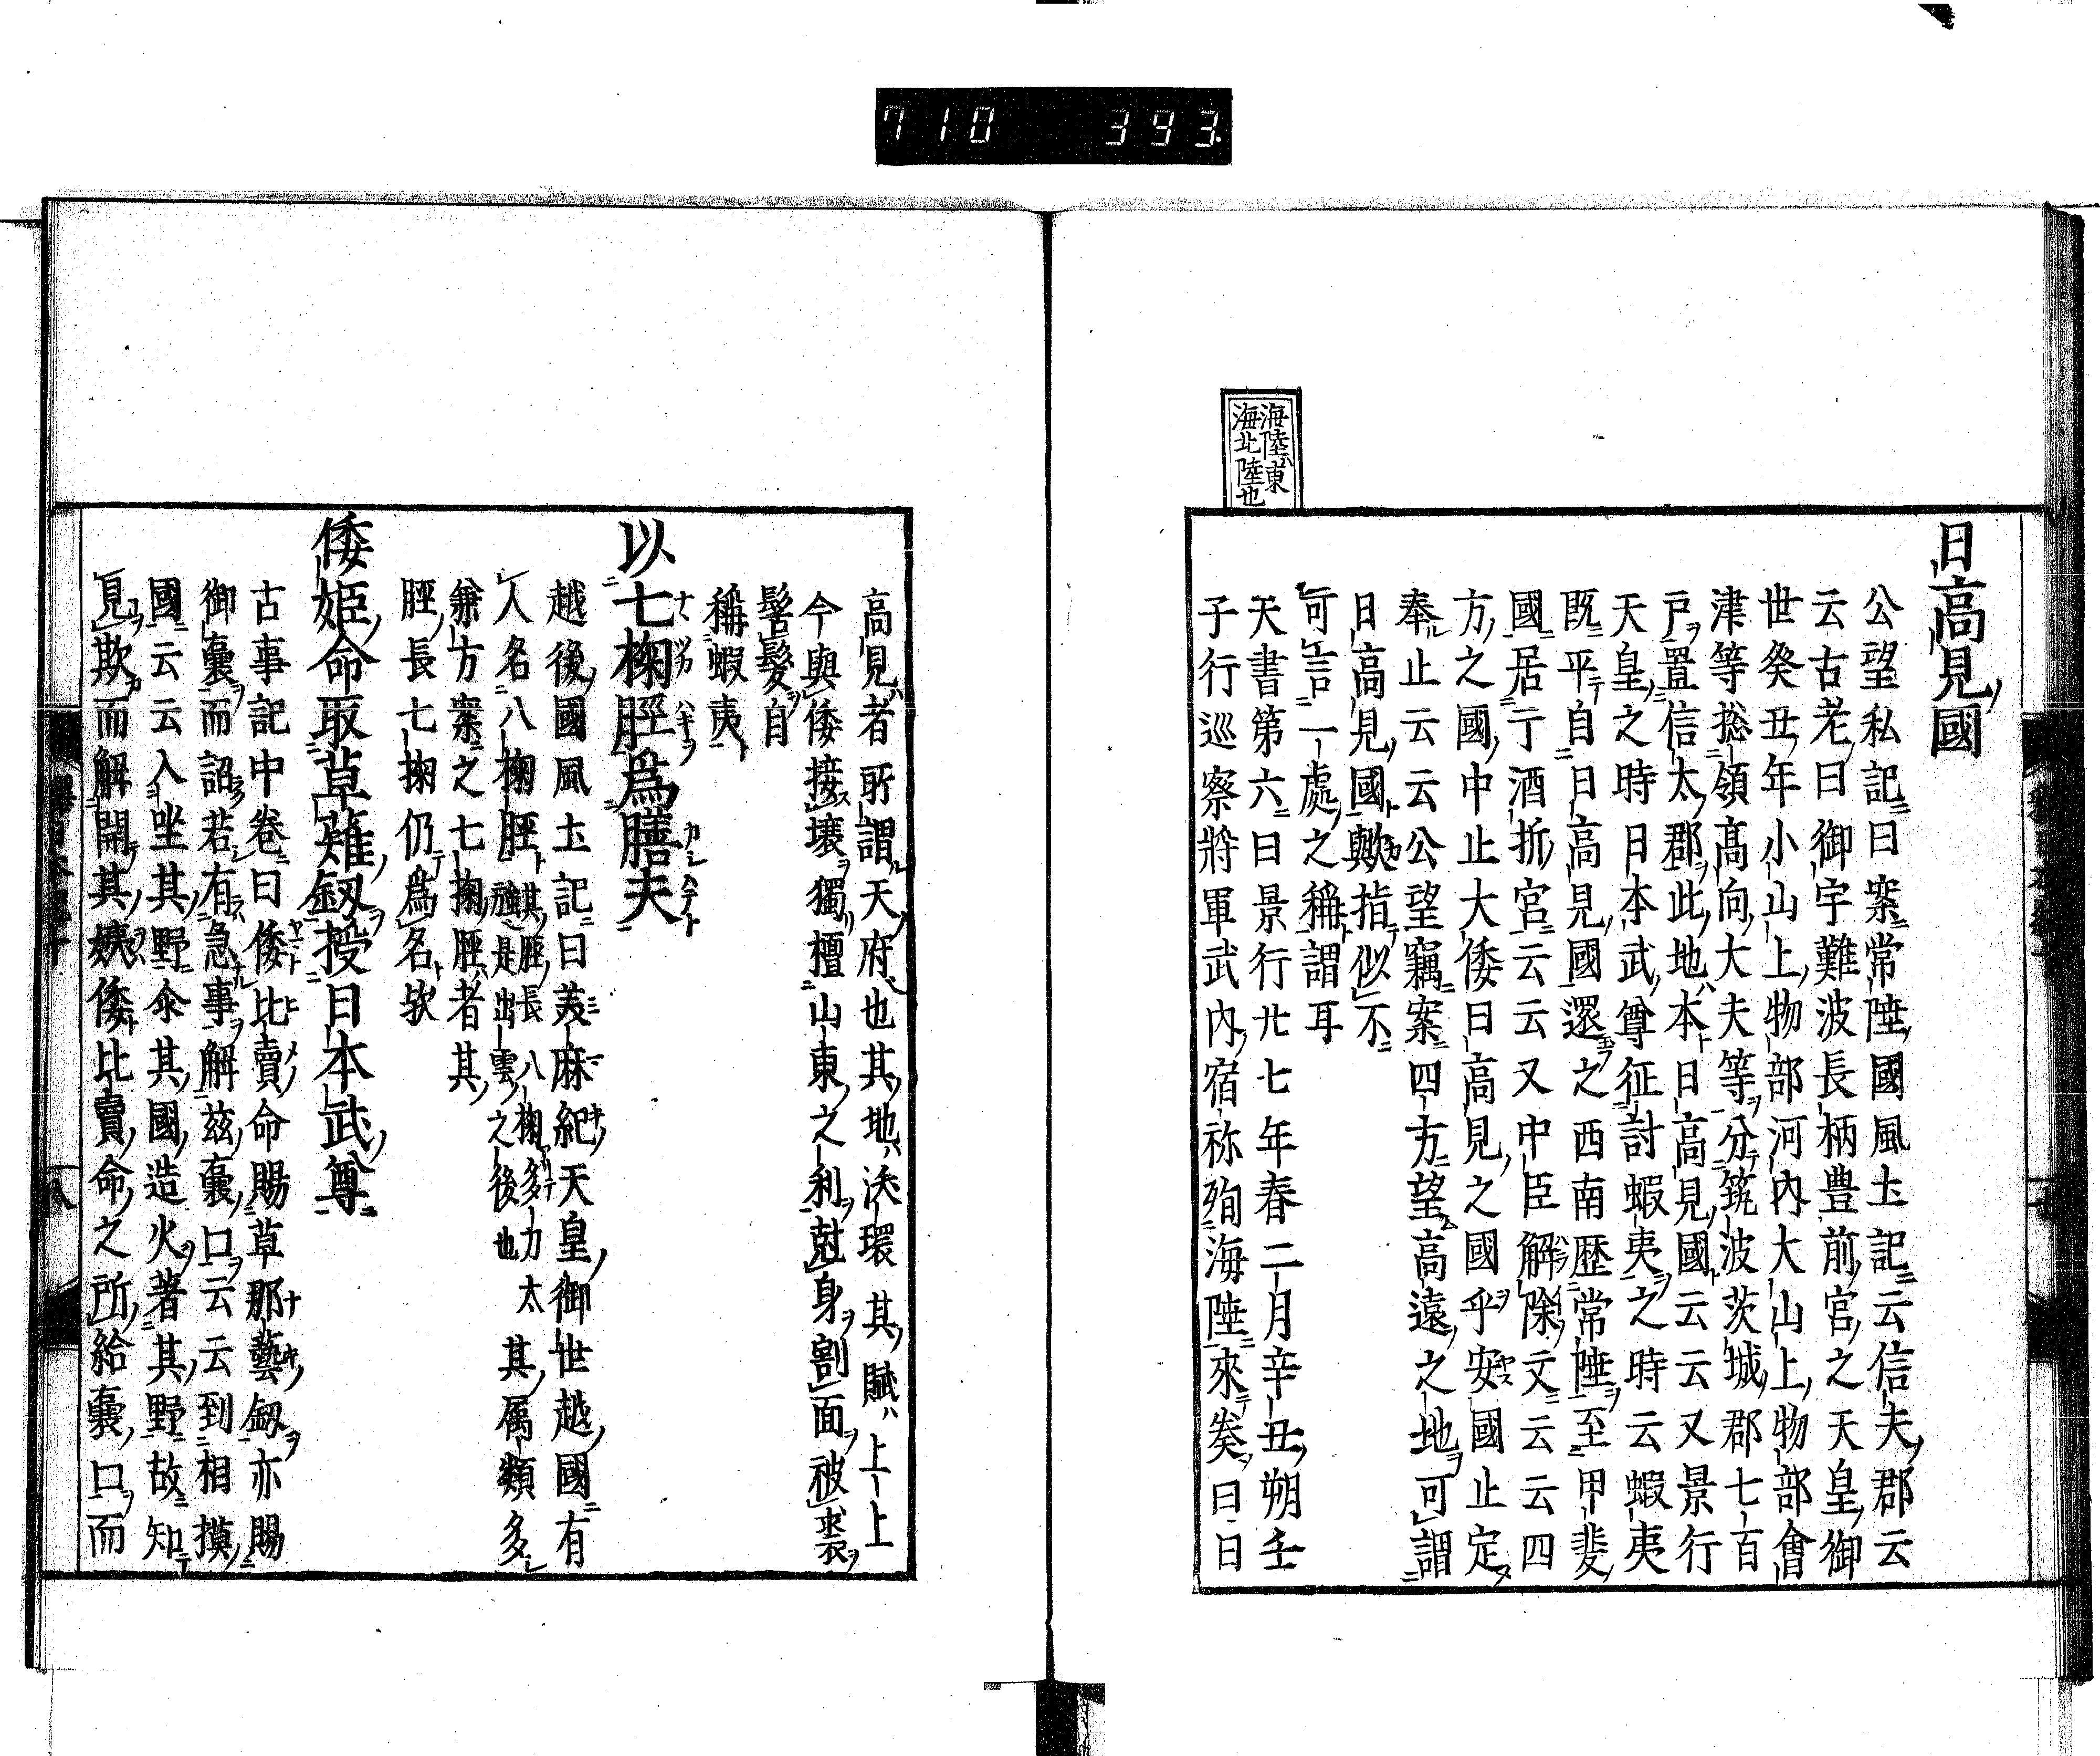 710 393
日高見國
公望私記曰案常陸國風土記云信夫郡云
云古老曰御宇難波長柄豊前宮之天皇御
世癸丑年小山上物部河内大山上物部會
津等揔領高向大夫等分筑波茨城郡七百
戸置信太郡此地本日高見國云云又景行
天皇之時日本武尊征討蝦夷之時云蝦夷
既平自日高見國還之西南歴常陸至甲斐
國居于酒折宮云云又中臣解除文云云四
方之國中止大倭日高見之國乎安國止定
奉止云云公望竊案四方望高遠之地可謂
日高見國歟指似不
可言一處之稱謂耳
天書第六曰景行廿七年春二月辛丑朔壬
子行巡察將軍武内宿祢殉海陸來奏曰日
海陸東
海北陸也
高見者所謂天府也其地渙環其賦上上
今與倭接壌獨檀山東之利尅身割面被裘
髻髪自
稱蝦夷
以七掬脛爲膳夫
ナヽツカハギヲ カシハデト
越後國風土記曰美麻紀天皇御世越國有
人名八掬脛其脛長八掬多力太強是出雲之後也其属類多
兼方案之七掬脛者其
脛長七掬仍爲名欤
倭姫命取草薙釼授日本武尊
古事記中巻曰倭比賣命賜草那藝釼亦賜
御嚢而詔若有急事解兹嚢口云云到相摸
國云云入坐其野尒其國造火著其野故知
見欺而解開其姨倭比賣命之所給嚢口而
八